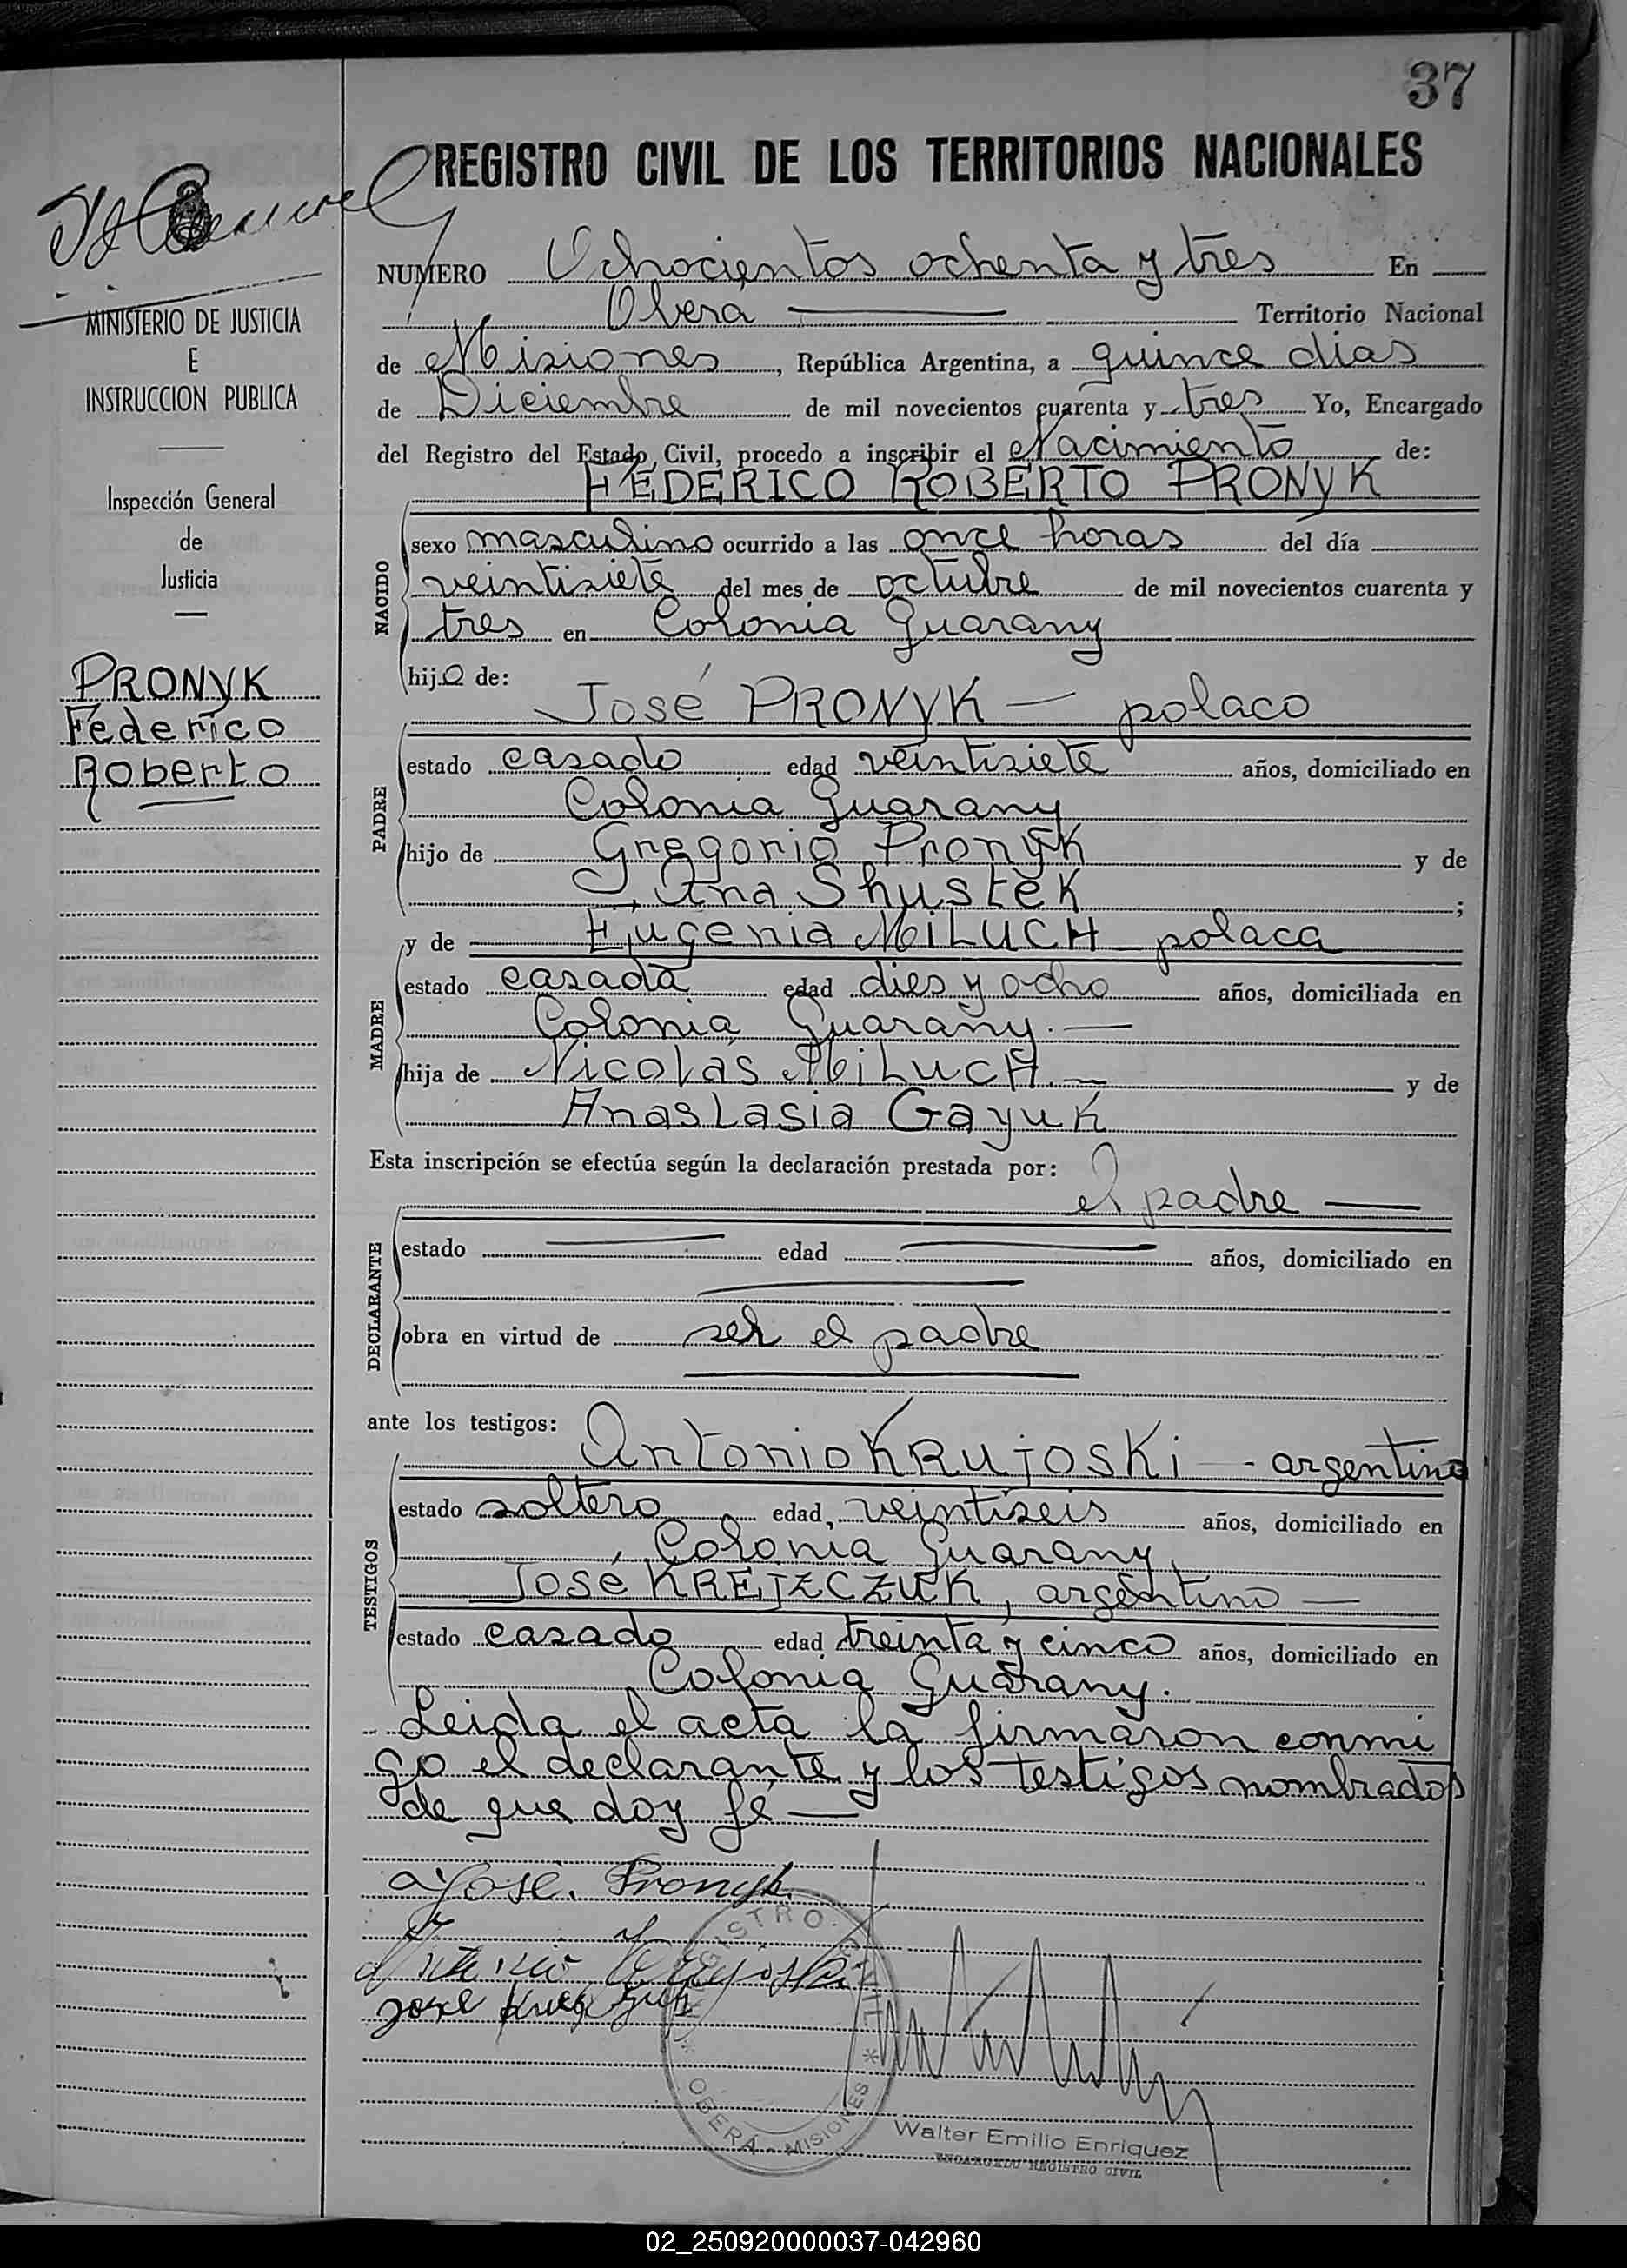 37
REGISTRO CIVIL DE LOS TERRITORIOS NACIONALES
NUMERO Ochocientos ochenta y tres En
Obera Territorio Nacional
de Misiones, República Argentina, a quince dias
de Diciembre de mil novecientos cuarenta y tres Yo, Encargado
del Registro del Estado Civil, procedo a inscribir el Nacimiento de:
FEDERICO ROBERTO PRONYK
NACIDO
sexo masculino ocurrido a las once horas del día
veintisiete del mes de octubre de mil novecientos cuarenta y
tres en Colonia Guarany
hijo de:
José PRONYK — polaco
PADRE
estado casado edad veintisiete años, domiciliado en
Colonia Guarany
hijo de Gregorio Pronyk y de
Ana Shustek ;
y de Eugenia MiLUCH polaca
MADRE
estado casada edad dies y ocho años, domiciliada en
Colonia Guarany. —
hija de Nicolás MiLucH. — y de
Anastasia Gayuk
Esta inscripción se efectúa según la declaración prestada por:
el padre —
DECLARANTE
estado edad años, domiciliado en
obra en virtud de ser el padre
ante los testigos:
Antonio KRUjOSKi - argentino
TESTIGOS
estado soltero edad, veintiseis años, domiciliado en
Colonia Guarany,
José KREJZCZUK, argentino —
estado casado edad treinta y cinco años, domiciliado en
Colonia Guarany.
Leida el acta la firmaron conmi
go el declarante y los testigos nombrados
de que doy fé —
José. Pronyk
REGISTRO CIVIL
* OBERÁ - MISIONES *
Walter Emilio Enriquez
ENCARGADO REGISTRO CIVIL
MINISTERIO DE JUSTICIA
E
INSTRUCCION PUBLICA
Inspección General
de
Justicia
PRONYK
Federico
Roberto
02_250920000037-042960